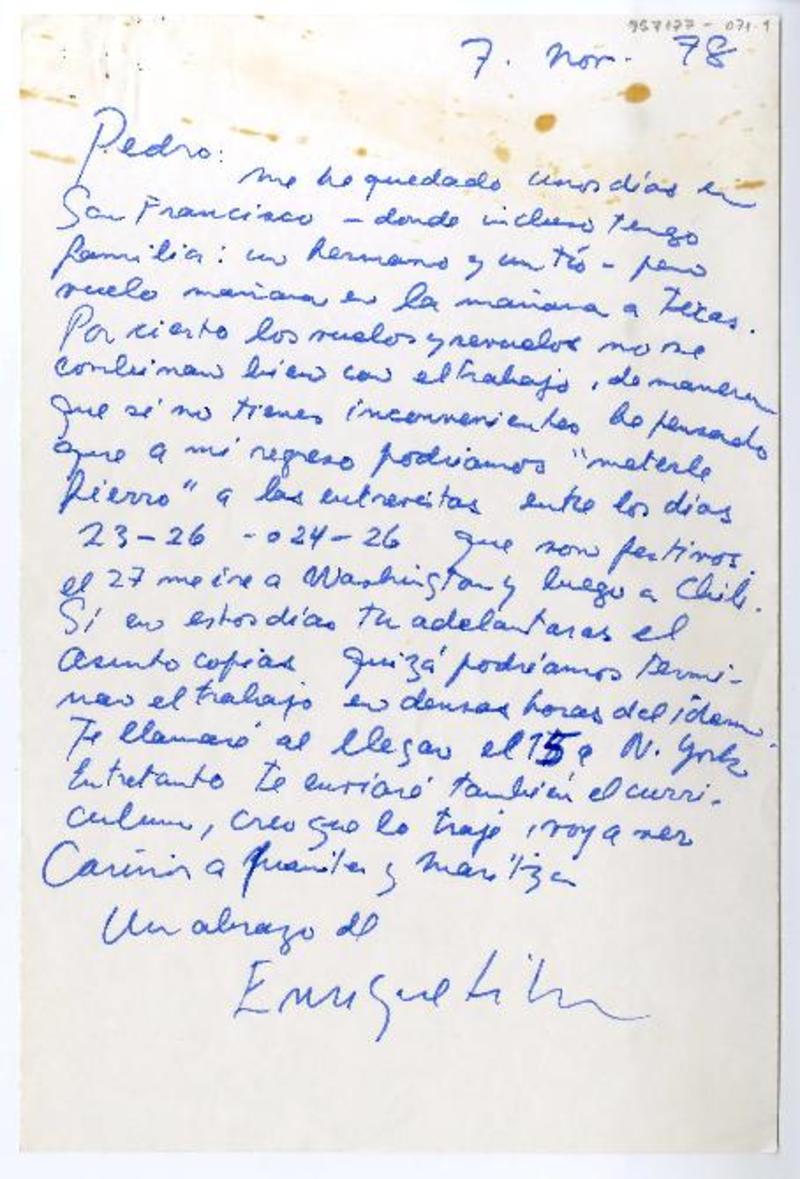 957177 - 071-1
7. Nov. 78
Pedro:
me he quedado unos días en
San Francisco - donde incluso tengo
familia: un hermano y un tío - pero
vuelo mañana en la mañana a Texas.
Por cierto los vuelos y revuelos no se
combinan bien con el trabajo, de manera
que si no tienes inconvenientes he pensado
que a mi regreso podríamos "meterle
fierro" a las entrevistas entre los días
23-26 - o 24-26 que son festivos.
el 27 me iré a Washington y luego a Chile.
Si en estos días tu adelantaras el
asunto copias quizá podríamos termi-
nar el trabajo en densas horas del idem.
Te llamaré al llegar el 15 a N. York
Entretanto te enviaré también el curri-
culum, creo que lo traje, voy a ver
Cariños a Juanita y Maritza
Un abrazo de
Enrique Lihn